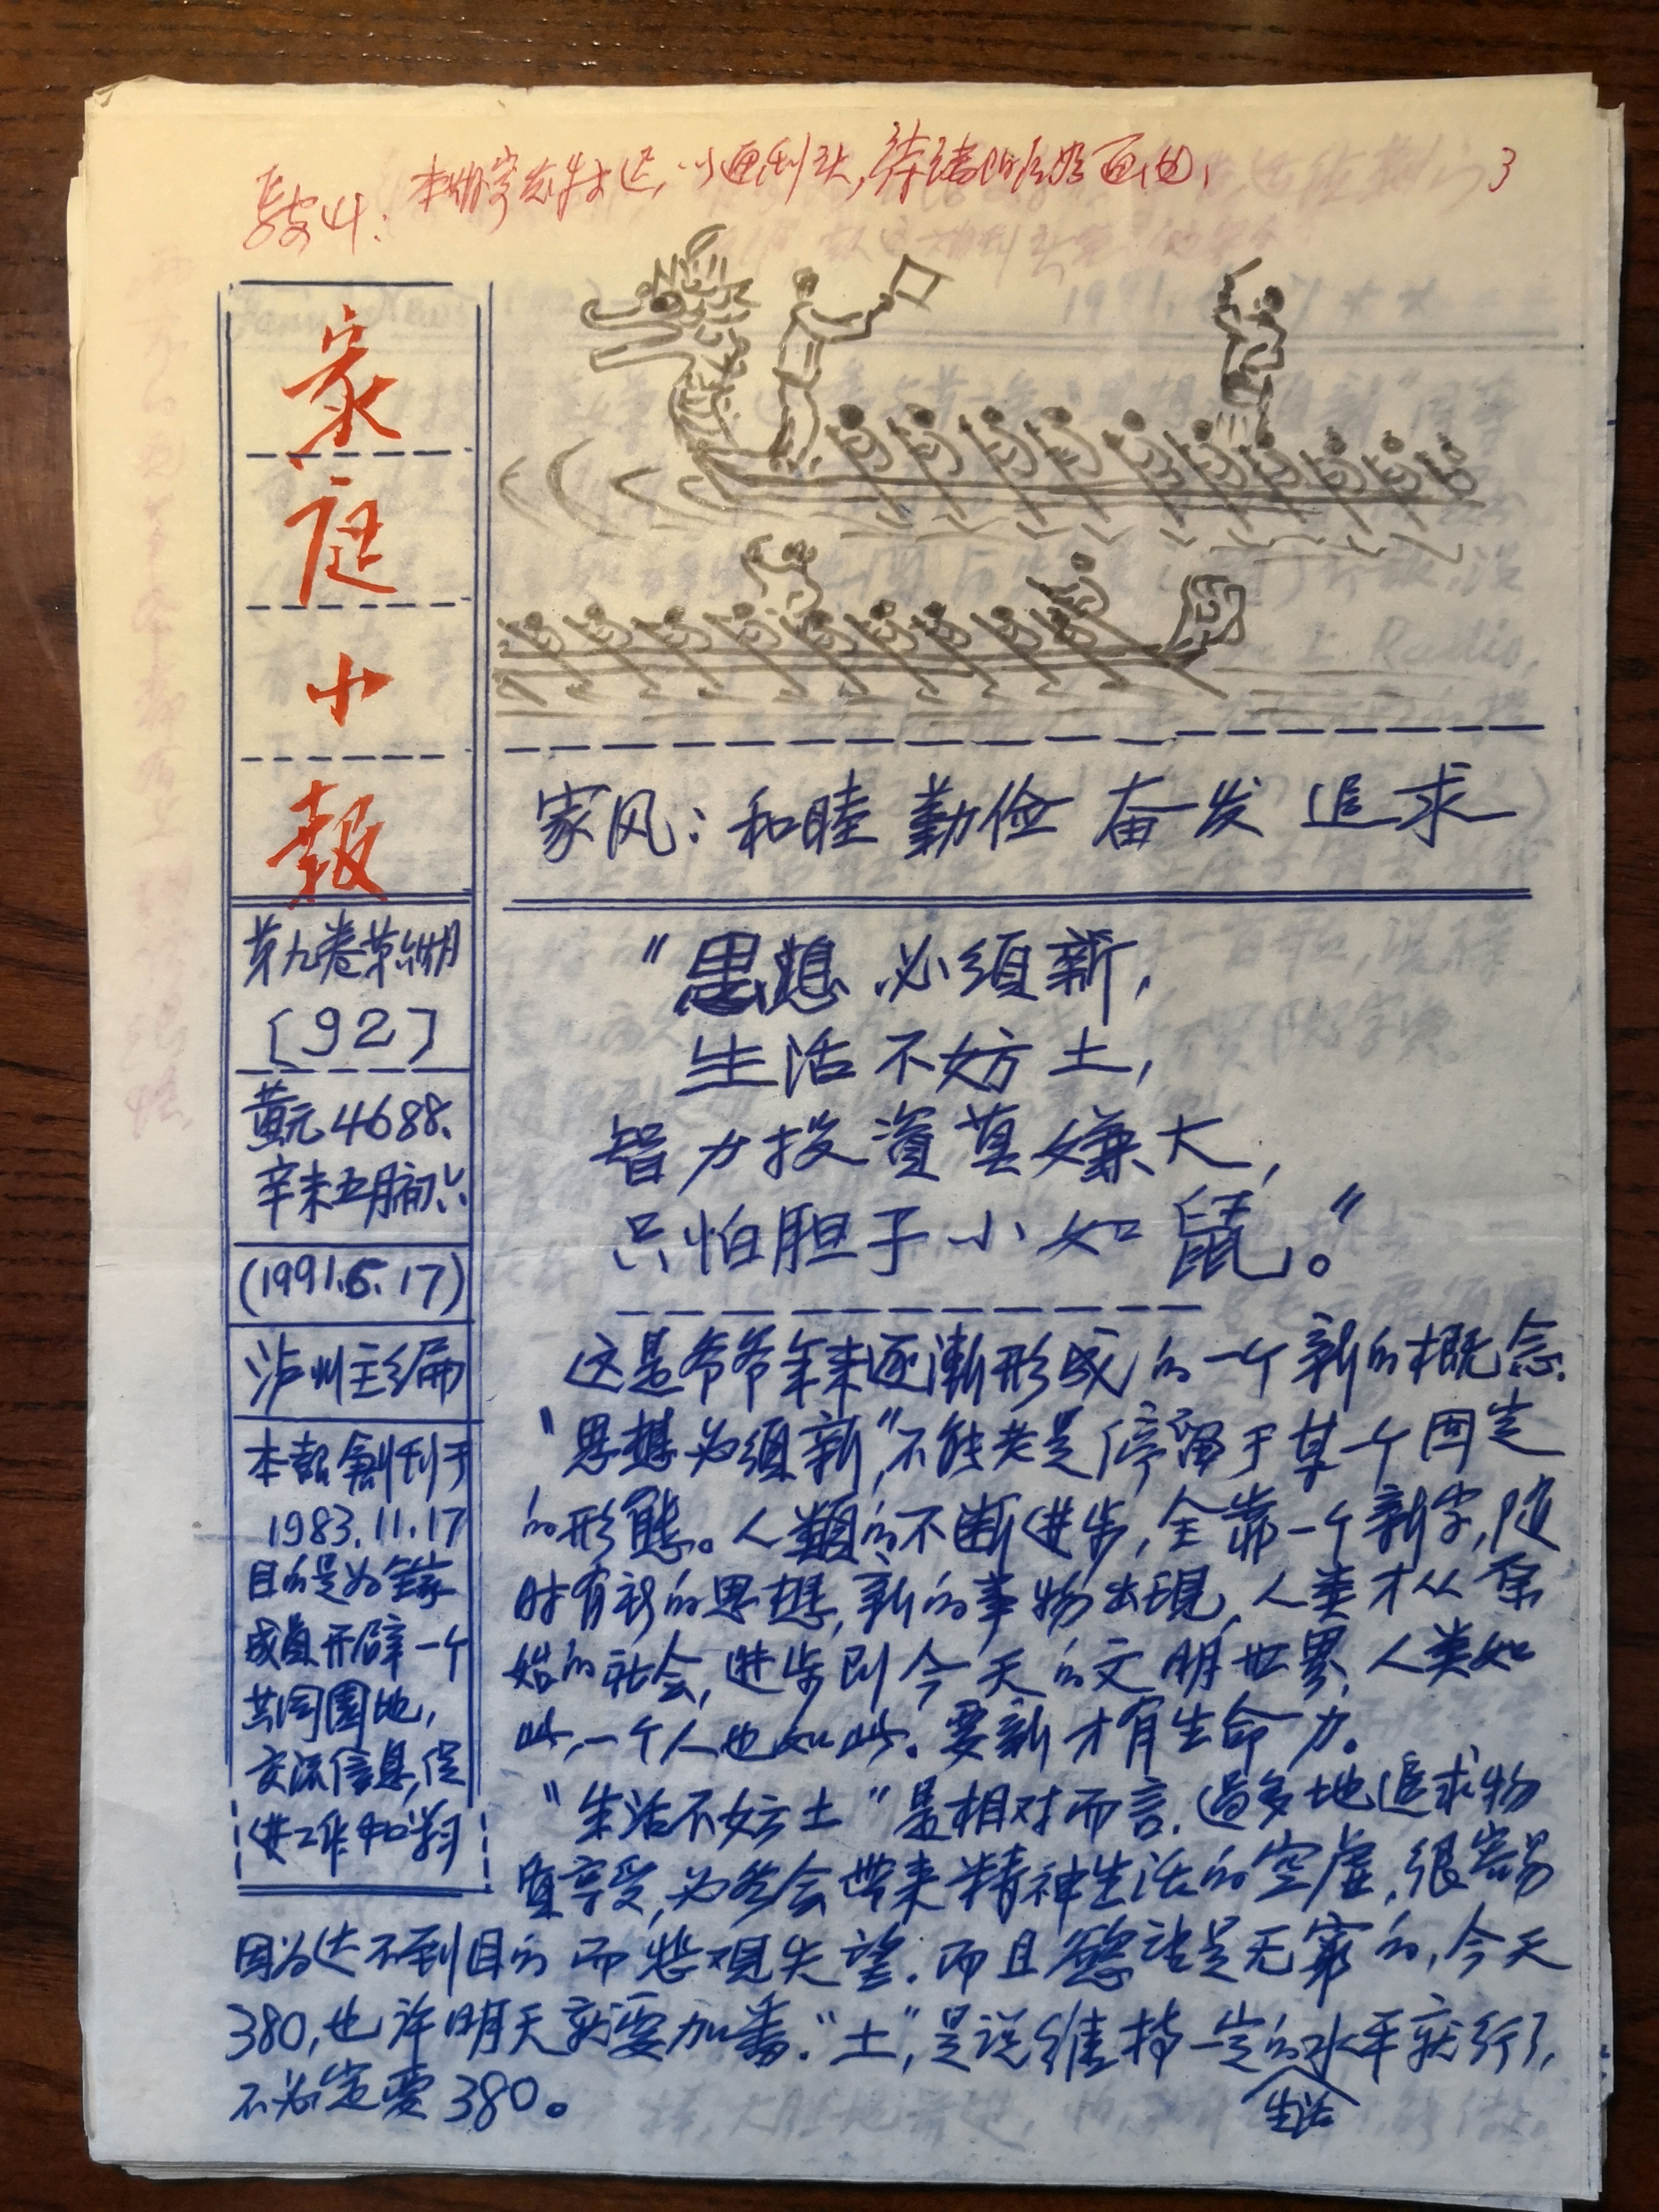 3
家庭小報
第九卷第
[92]
黄元4688、
辛未五月初六
(1991.6.17)
泸州主编
本報創刊于
1983.11.17
目的是为全家
成员开辟一个
共同園地,
交流信息,促
进工作和学习
家风:和睦 勤俭 奋发 追求
"思想必须新,
生活不妨土,
智力投資莫嫌大,
只怕胆子小如鼠。"
这是爷爷年来逐漸形成的一个新的概念.
"思想必须新",不能老是停留于某一个固定
的形態。人類的不断进步,全靠一个新字,随
时有新的思想,新的事物出現,人类才从原
始的社会,进步到今天的文明世界,人类如
此,一个人也如此。要新才有生命力。
"生活不妨土"是相对而言.過多地追求物
質享受,必然会带来精神生活的空虚,很容易
因为达不到目的而悲观失望.而且慾望是无窮的,今天
380,也许明天就要加番."土",是说维持一定的生活水平就行了,
不必定要380。